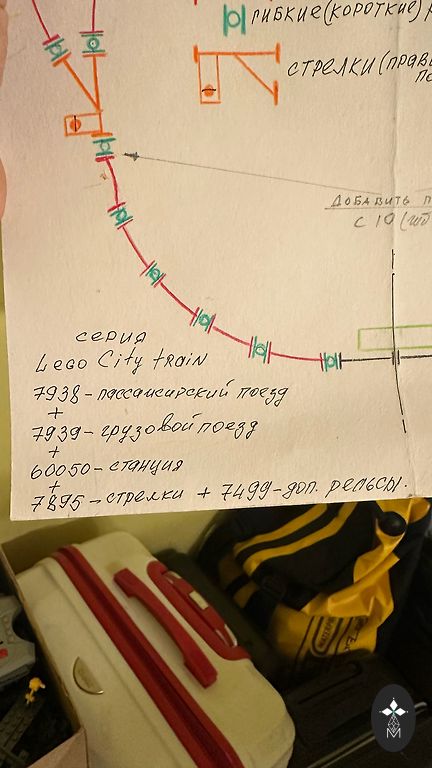 ГИБКИЕ (КОРОТКИЕ)
СТРЕЛКИ (ПРАВ
ДОБАВИТЬ П
С 10 (ШТ
СЕРИЯ
LEGO City TRAIN
7938 - ПАССАЖИРСКИЙ ПОЕЗД
+
7939 - ГРУЗОВОЙ ПОЕЗД
+
60050 - СТАНЦИЯ
+
7895 - СТРЕЛКИ + 7499 - ДОП. РЕЛЬСЫ.
M